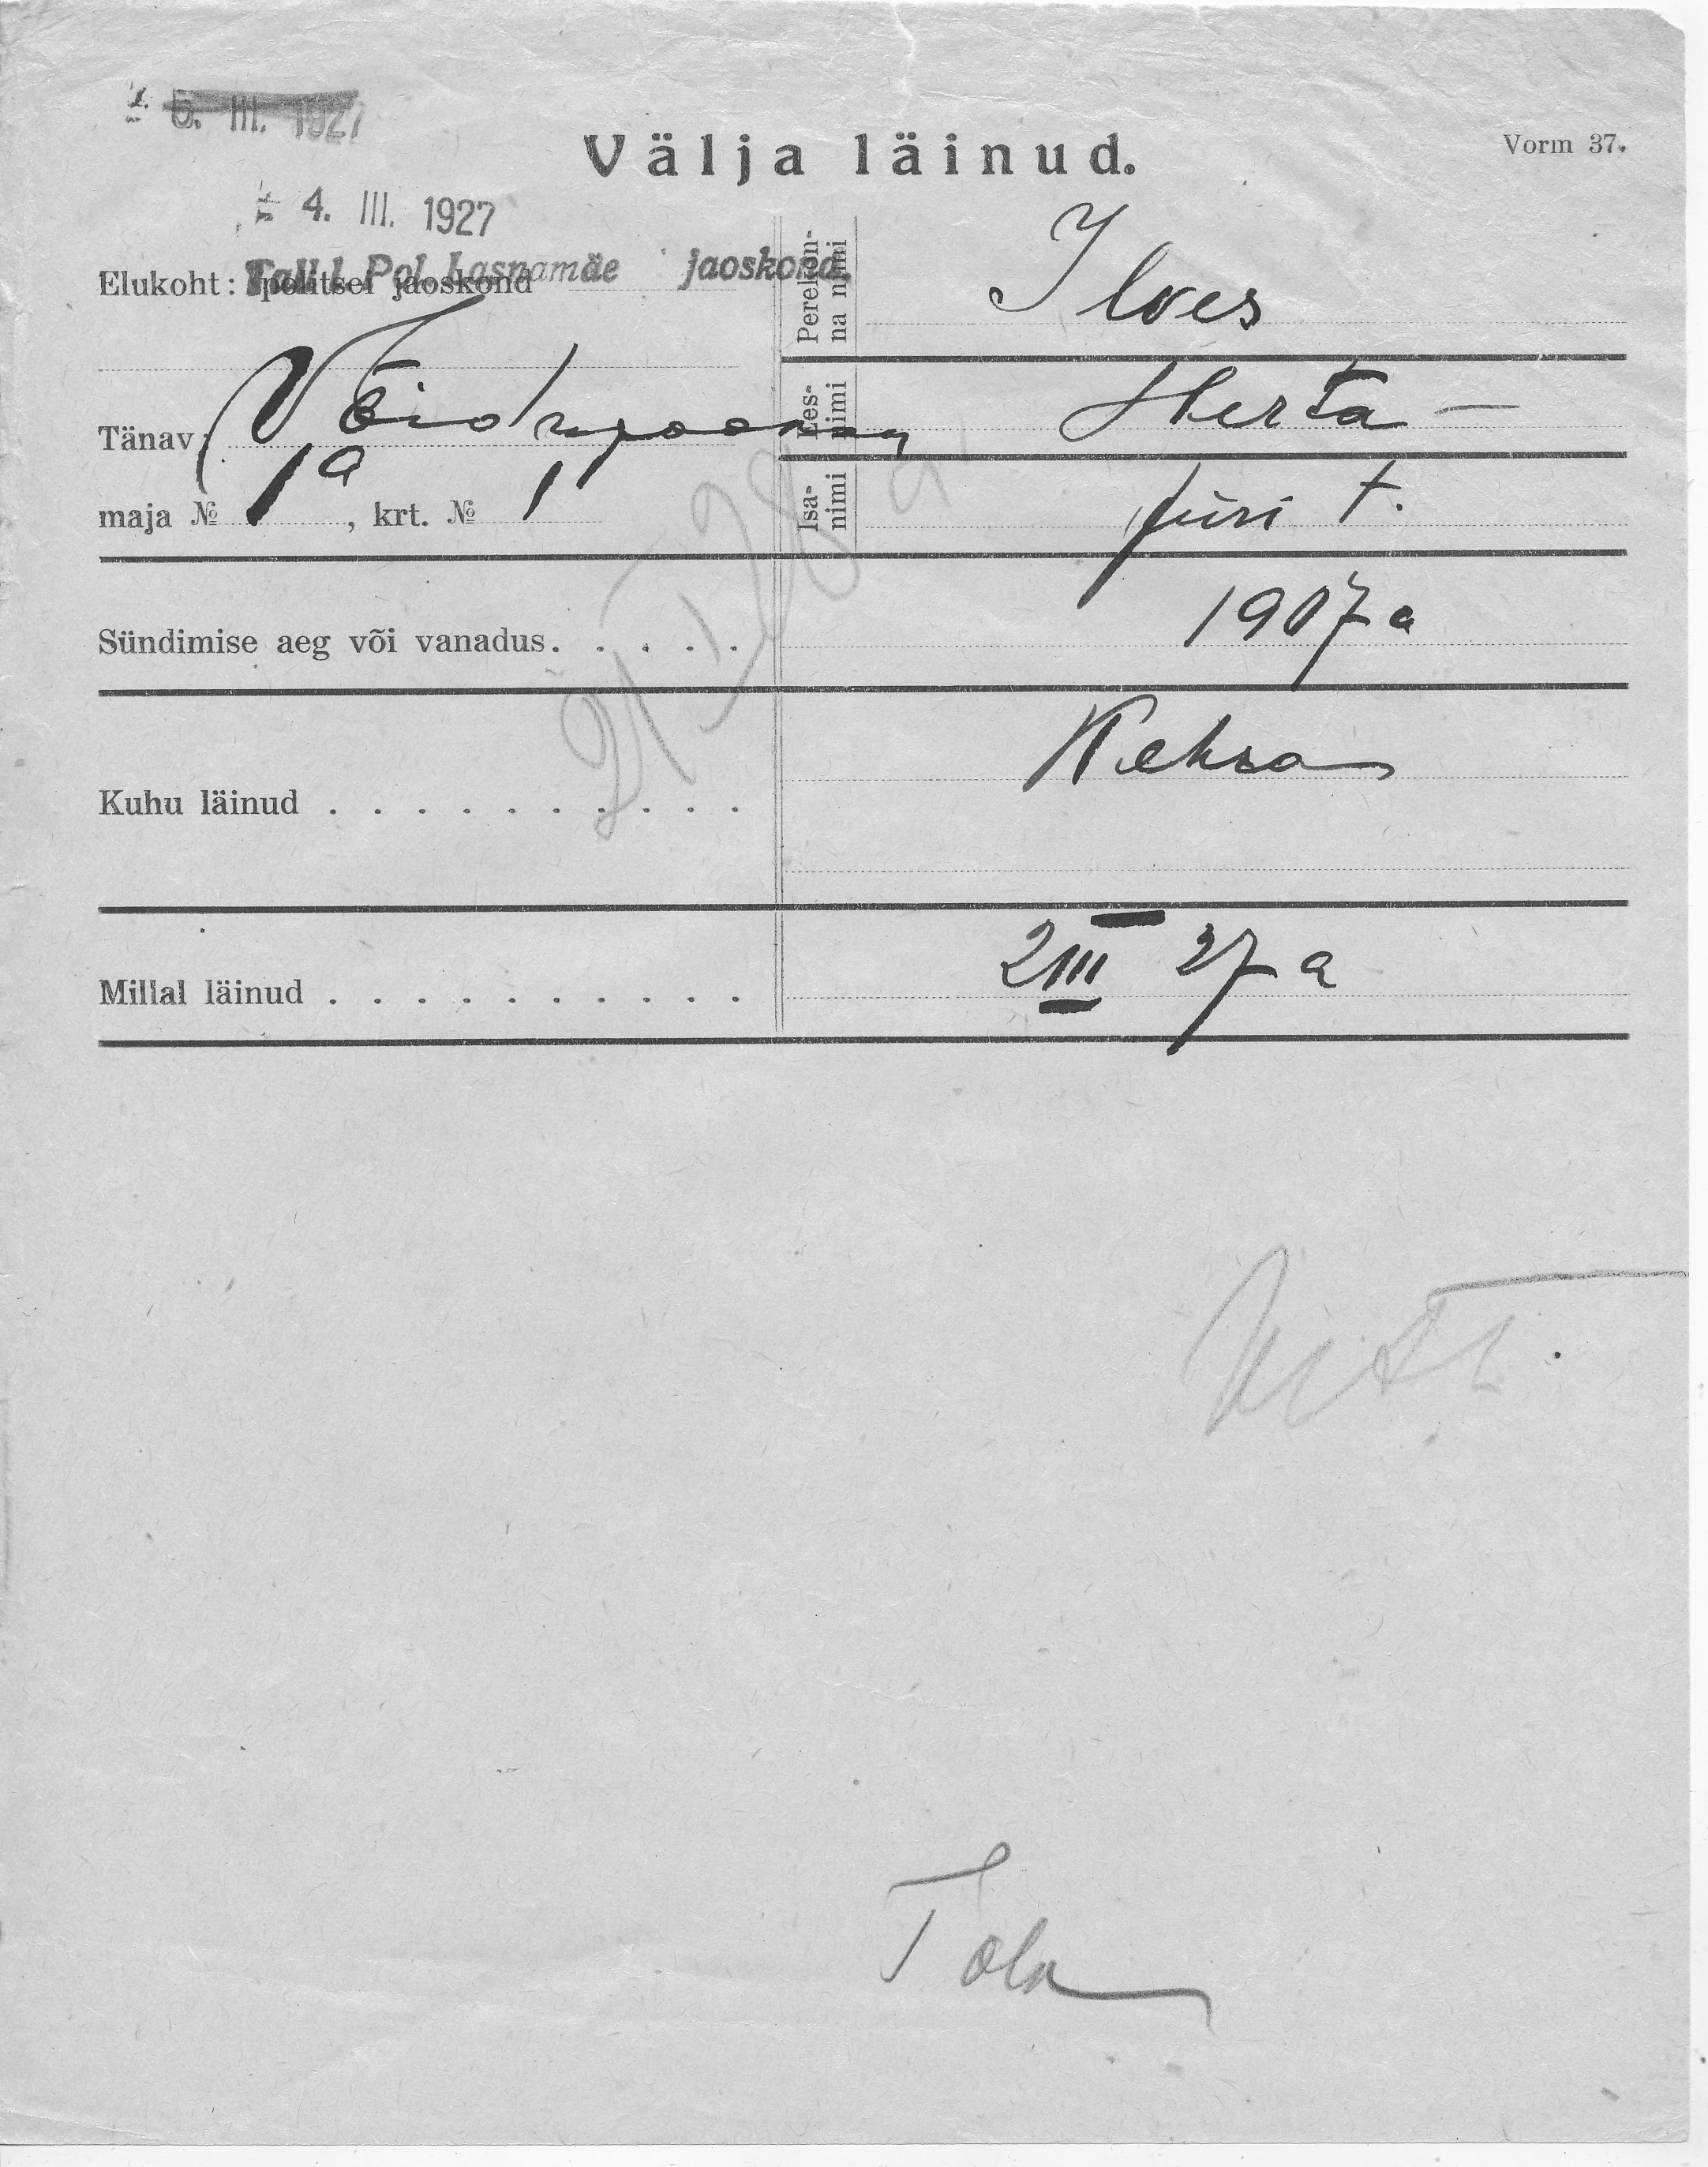 5. III. 1927
Välja läinud.
Vorm 37.
4. III. 1927
Elukoht: politsei jaoskond
Tall. l. Pol. Lasnamäe jaoskond
Perekonna nimi
Ilves
Tänav:
Ees-
nimi
Herta —
maja № 1a, krt. № 1
Isa-
nimi
Jüri t.
Sündimise aeg või vanadus. . . . . .
1907 a
Kuhu läinud . . . . . . . . . .
Kehra
Millal läinud . . . . . . . . . .
2 III 27 a